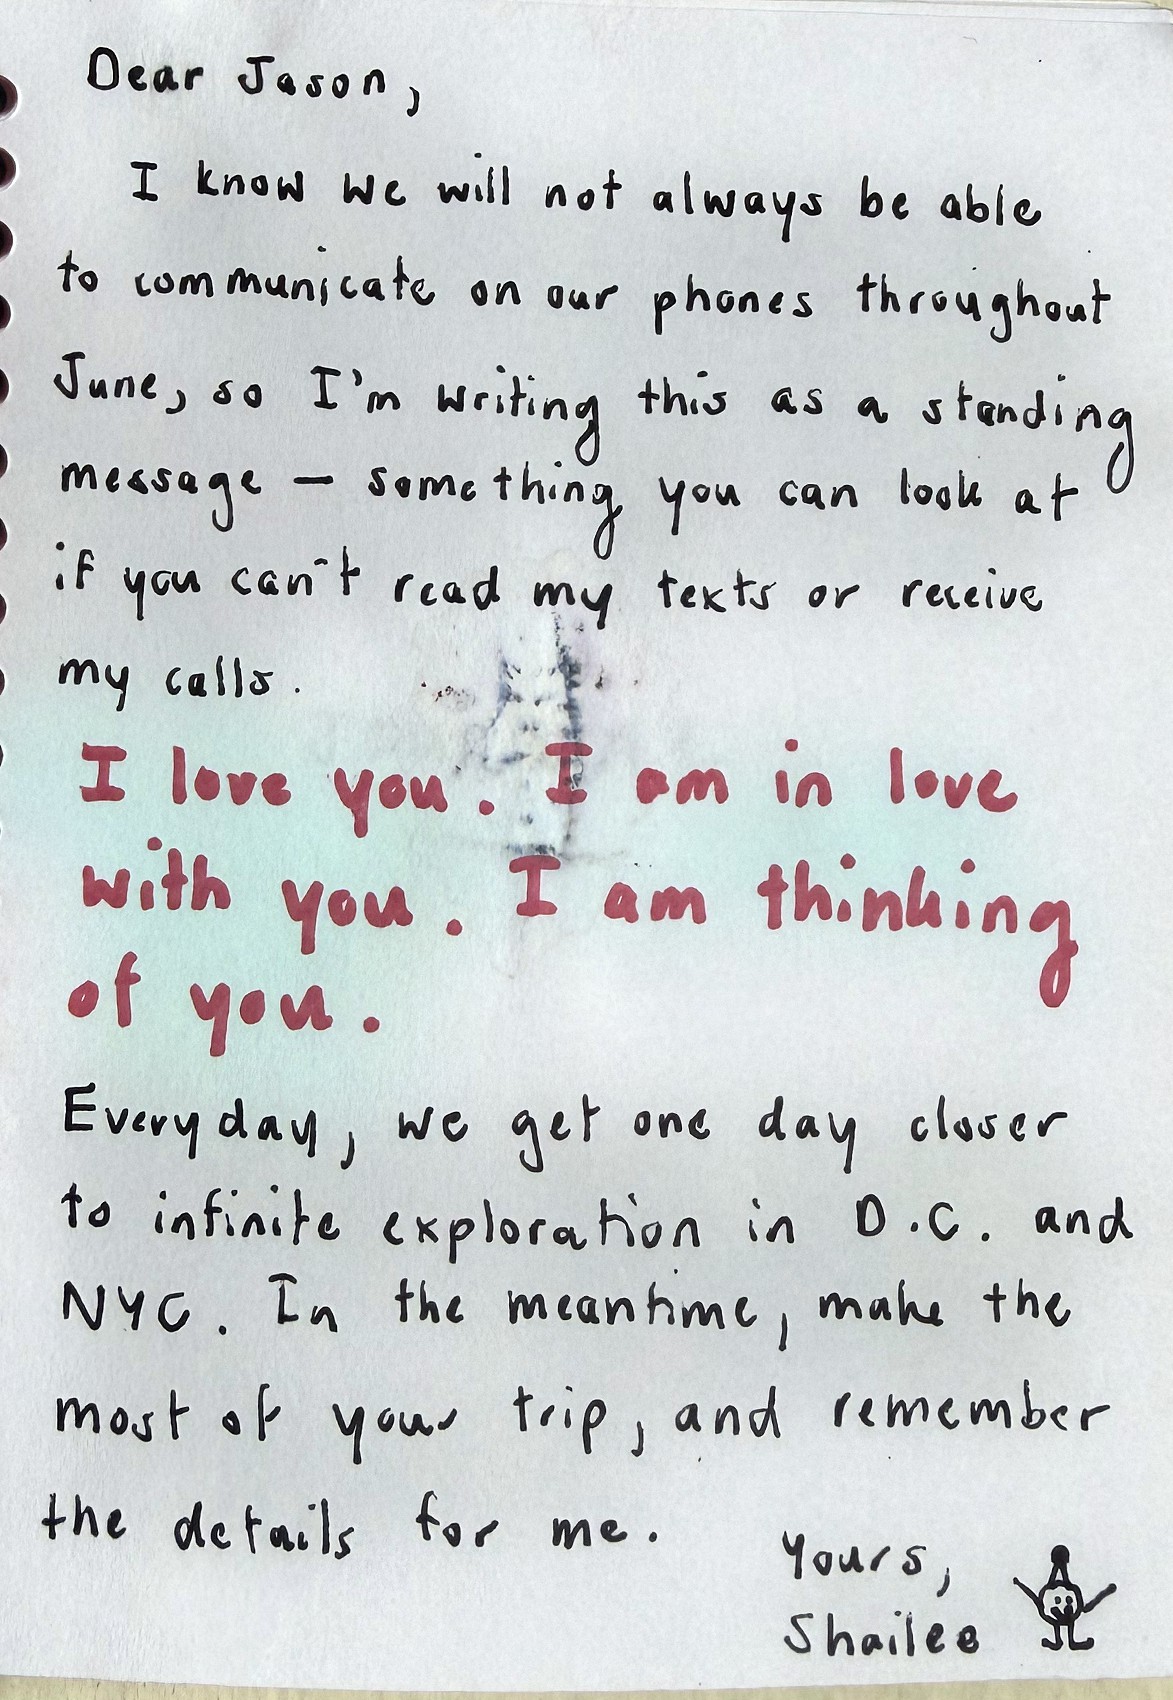 Dear Jason,
I know we will not always be able
to communicate on our phones throughout
June, so I'm writing this as a standing
message — something you can look at
if you can't read my texts or receive
my calls.
I love you. I am in love
with you. I am thinking
of you.
Everyday, we get one day closer
to infinite exploration in D.C. and
NYC. In the meantime, make the
most of your trip, and remember
the details for me.
Yours,
Shailee